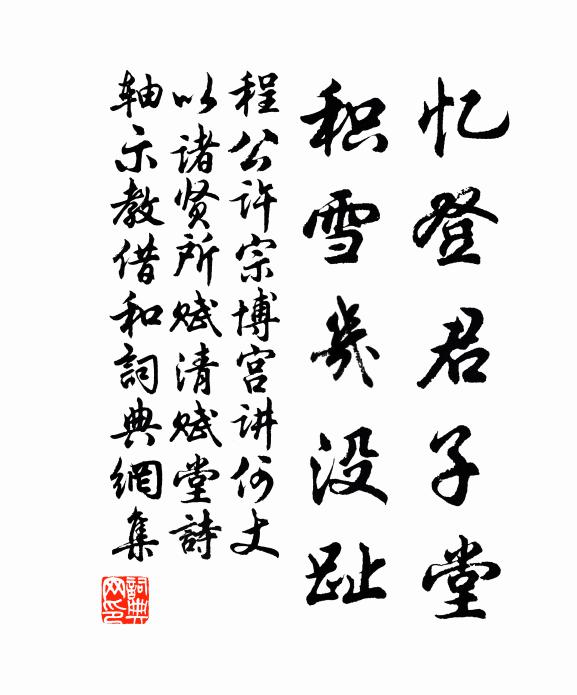 忆登君子堂
积雪几没趾
程公许宗博宫讲何丈
以诸贤所赋清赋堂詩
轴示教借和詞典網集
詞典网印